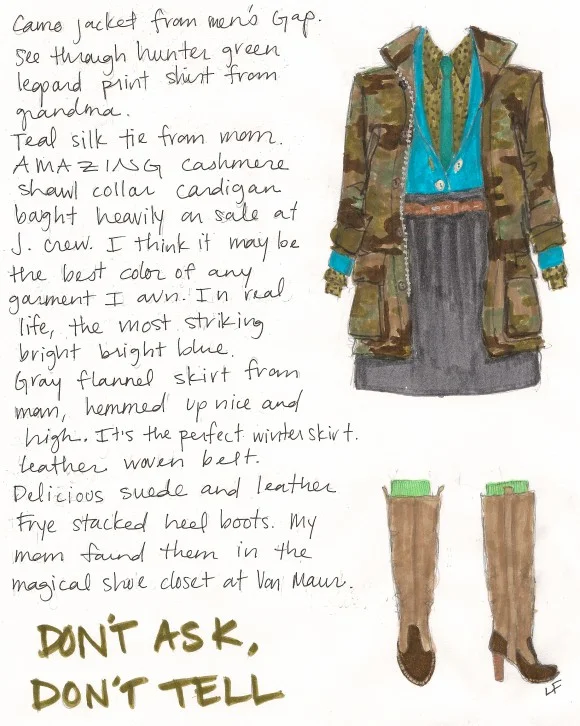 Camo jacket from men's Gap.
See through hunter green
leopard print shirt from
grandma.
Teal silk tie from mom.
AMAZING cashmere
shawl collar cardigan
bought heavily on sale at
J. Crew. I think it may be
the best color of any
garment I own. In real
life, the most striking
bright bright blue.
Gray flannel skirt from
mom, hemmed up nice and
high. It's the perfect winter skirt.
Leather woven belt.
Delicious suede and leather
Frye stacked heel boots. My
mom found them in the
magical shoe closet at Von Maur.
DON'T ASK,
DON'T TELL
LF